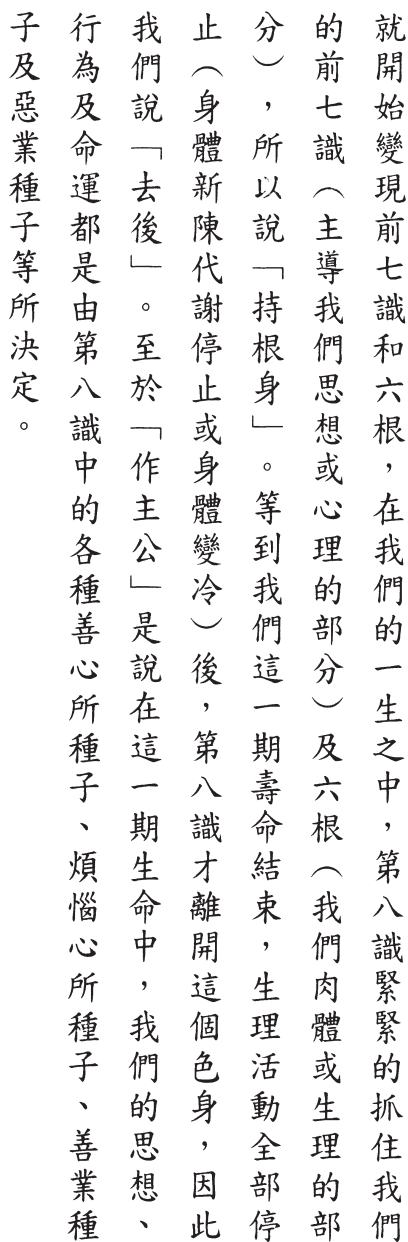 就開始變現前七識和六根，在我們的一生之中，第八識緊緊的抓住我們
的前七識（主導我們思想或心理的部分）及六根（我們肉體或生理的部
分），所以說「持根身」。等到我們這一期壽命結束，生理活動全部停
止（身體新陳代謝停止或身體變冷）後，第八識才離開這個色身，因此
我們說「去後」。至於「作主公」是說在這一期生命中，我們的思想、
行為及命運都是由第八識中的各種善心所種子、煩惱心所種子、善業種
子及惡業種子等所決定。